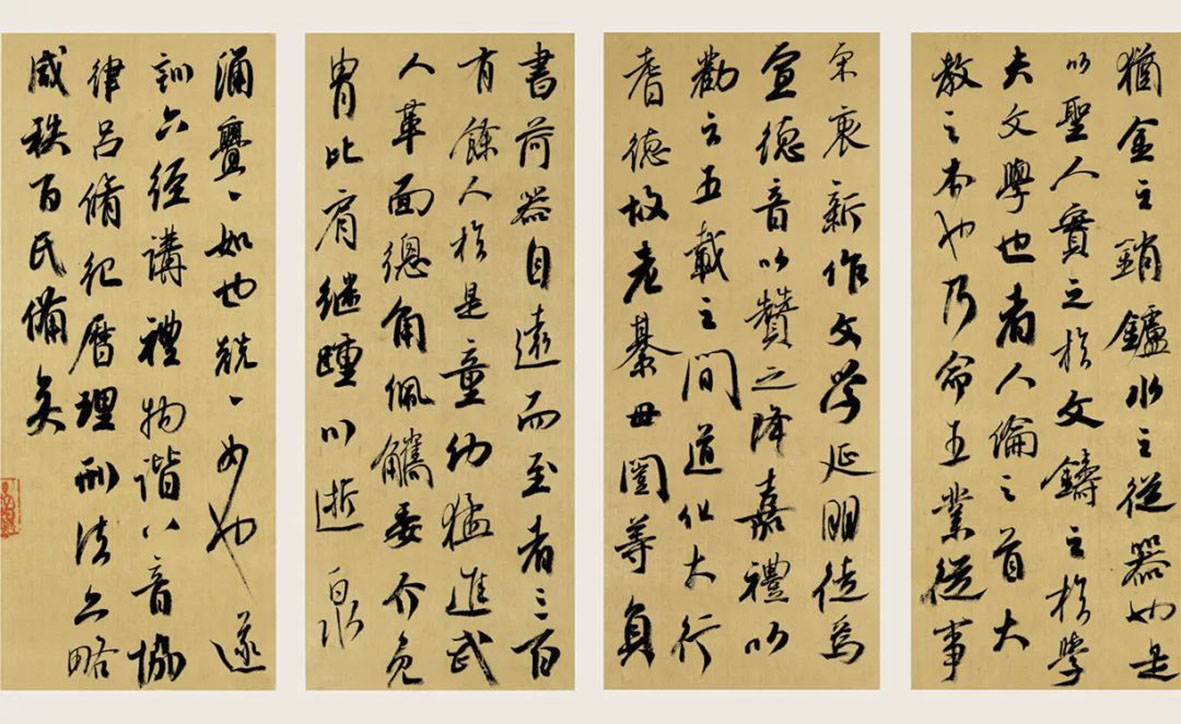 猶金之銷鑪水之從器也是
以聖人實之於文鑄之於學
夫文學也者人倫之首大
教之本也乃命五業從事
宋衷新作文学延朋徒焉
宣德音以贊之降嘉禮以
勸之五載之間道化大行
耆德故老綦毋闓等負
書荷器自遠而至者三百
有餘人於是童幼猛進武
人革面總角佩觿委介免
胄比肩繼踵川逝泉
涌亹〻如也兢〻如也遂
訓六經講禮物諧八音協
律呂脩紀曆理刑法六略
咸秩百氏備矣